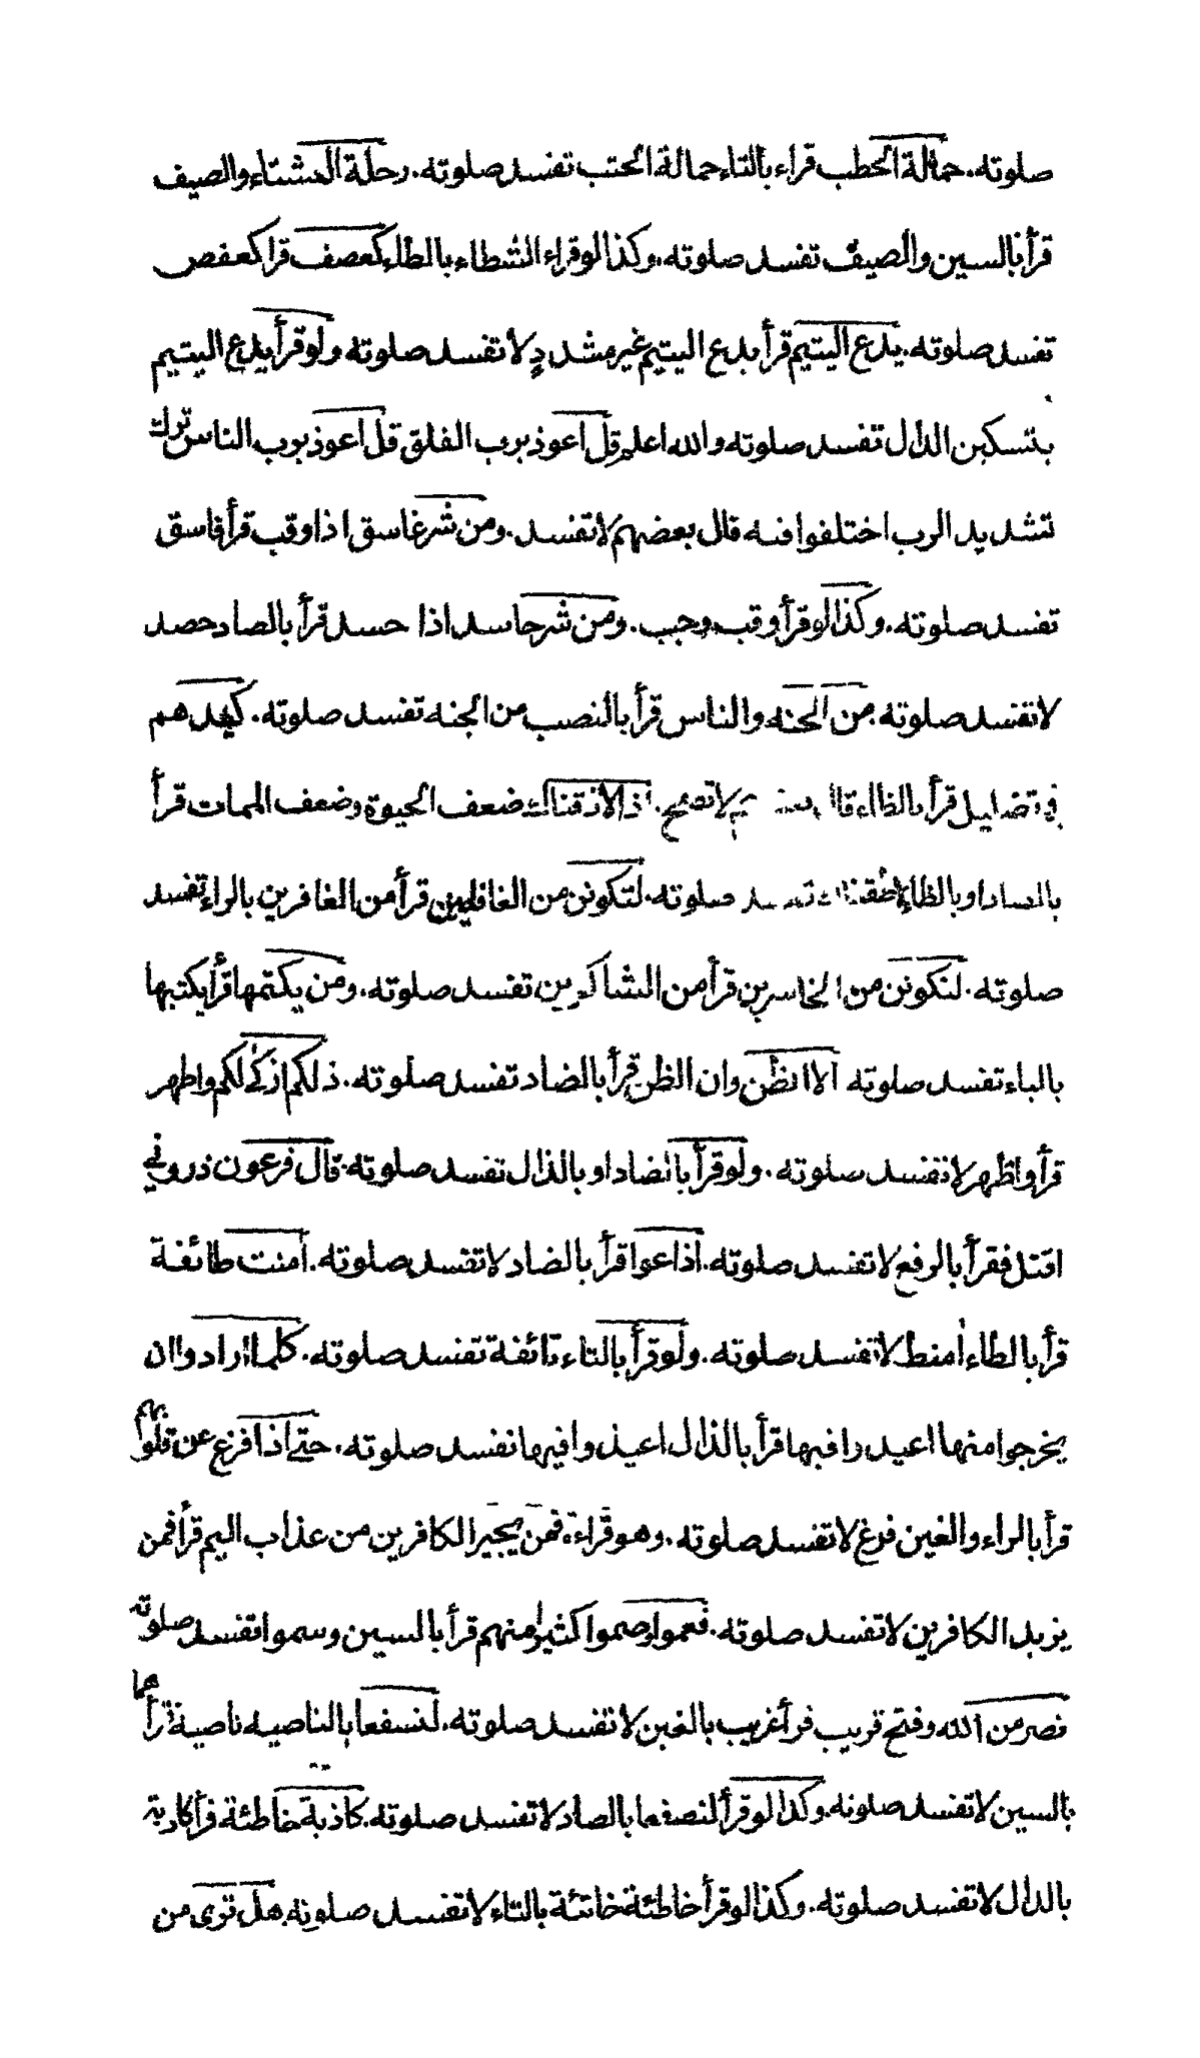 صلوته. حمالة الحطب قراء بالتاء حمالة الحتب تفسد صلوته. رحلة الشتاء والصيف
قرأ بالسين والصيف تفسد صلوته. وكذا لو قراء الشطاء بالطاء كعصف قرا كعفص
تفسد صلوته. يدع اليتيم قرأ يدع اليتيم غير مشدد لا تفسد صلوته ولو قرأ يدع اليتيم
بتسكين الدال تفسد صلوته والله اعلم قل اعوذ برب الفلق قل اعوذ برب الناس ترك
تشديد الرب اختلفوا فيه قال بعضهم لا تفسد. ومن شر غاسق اذا وقب قرأ فاسق
تفسد صلوته. وكذا لو قرأ وقب وجب. ومن شر حاسد اذا حسد قرأ بالصاد حصد
لا تفسد صلوته. من الجنه والناس قرأ بالنصب من الجنه تفسد صلوته. كيدهم
في تضليل قرأ بالظاء لا تصح. اذا لاذقناك ضعف الحيوة وضعف الممات قرأ
بالصاد او بالظاء تفسد صلوته. لتكونن من الغافلين قرأ من الغافرين بالراء تفسد
صلوته. لنكونن من الخاسرين قرأ من الشاكرين تفسد صلوته. ومن يكتمها قرأ يكتبها
بالباء تفسد صلوته الا الظن وان الظن قرأ بالضاد تفسد صلوته. ذلكم ازكى لكم واطهر
قرأ واظهر لا تفسد صلوته. ولو قرأ بالضاد او بالذال تفسد صلوته. قال فرعون ذروني
اقتل فقرأ بالرفع لا تفسد صلوته. اذاعوا قرأ بالضاد لا تفسد صلوته. امنت طائفة
قرأ بالطاء امنط لا تفسد صلوته. ولو قرأ بالتاء تائفة تفسد صلوته. كلما ارادوا ان
يخرجوا منها اعيدوا فيها قرأ بالذال اعيذوا فيها تفسد صلوته. حتى اذا فزع عن قلوبهم
قرأ بالراء والغين فرغ لا تفسد صلوته. وهو قراءة. فمن يجير الكافرين من عذاب اليم قرأ فمن
يزيد الكافرين لا تفسد صلوته. فعموا وصموا كثير منهم قرأ بالسين وسموا تفسد صلوته
نصر من الله وفتح قريب قرأ غريب بالغين لا تفسد صلوته. لنسفعا بالناصيه ناصية قرأهما
بالسين لا تفسد صلوته. وكذا لو قرأ لنصفعا بالصاد لا تفسد صلوته. كاذبة خاطئة قرأ كادبة
بالدال لا تفسد صلوته. وكذا لو قرأ خاطئة خاتئة بالتاء لا تفسد صلوته. هل ترى من